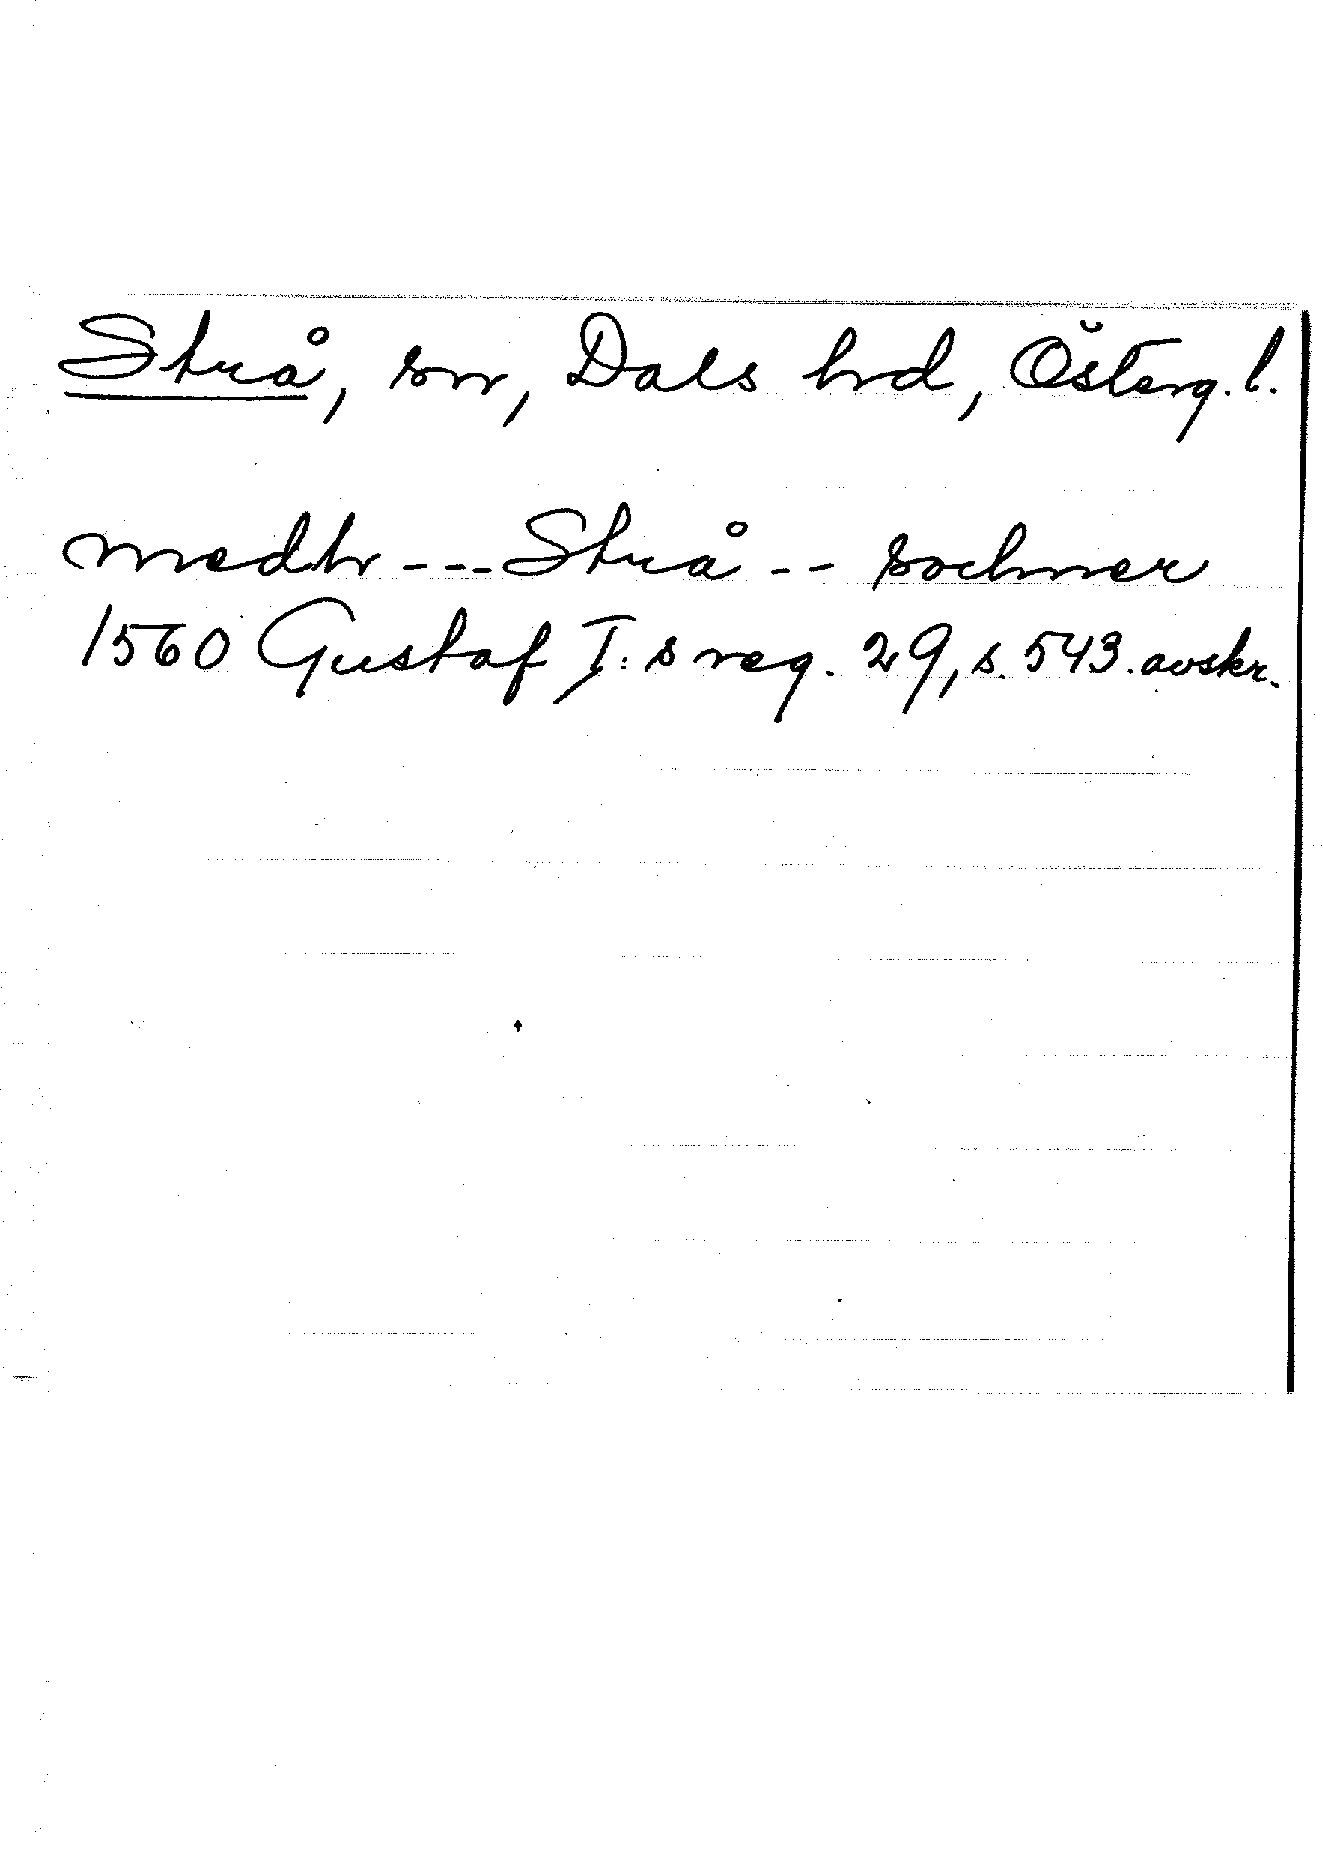 Strå, sn, Dals hd, Österg. l.
medh --- Strå -- sochner
1560 Gustaf I:s reg. 29, s. 543. avskr.